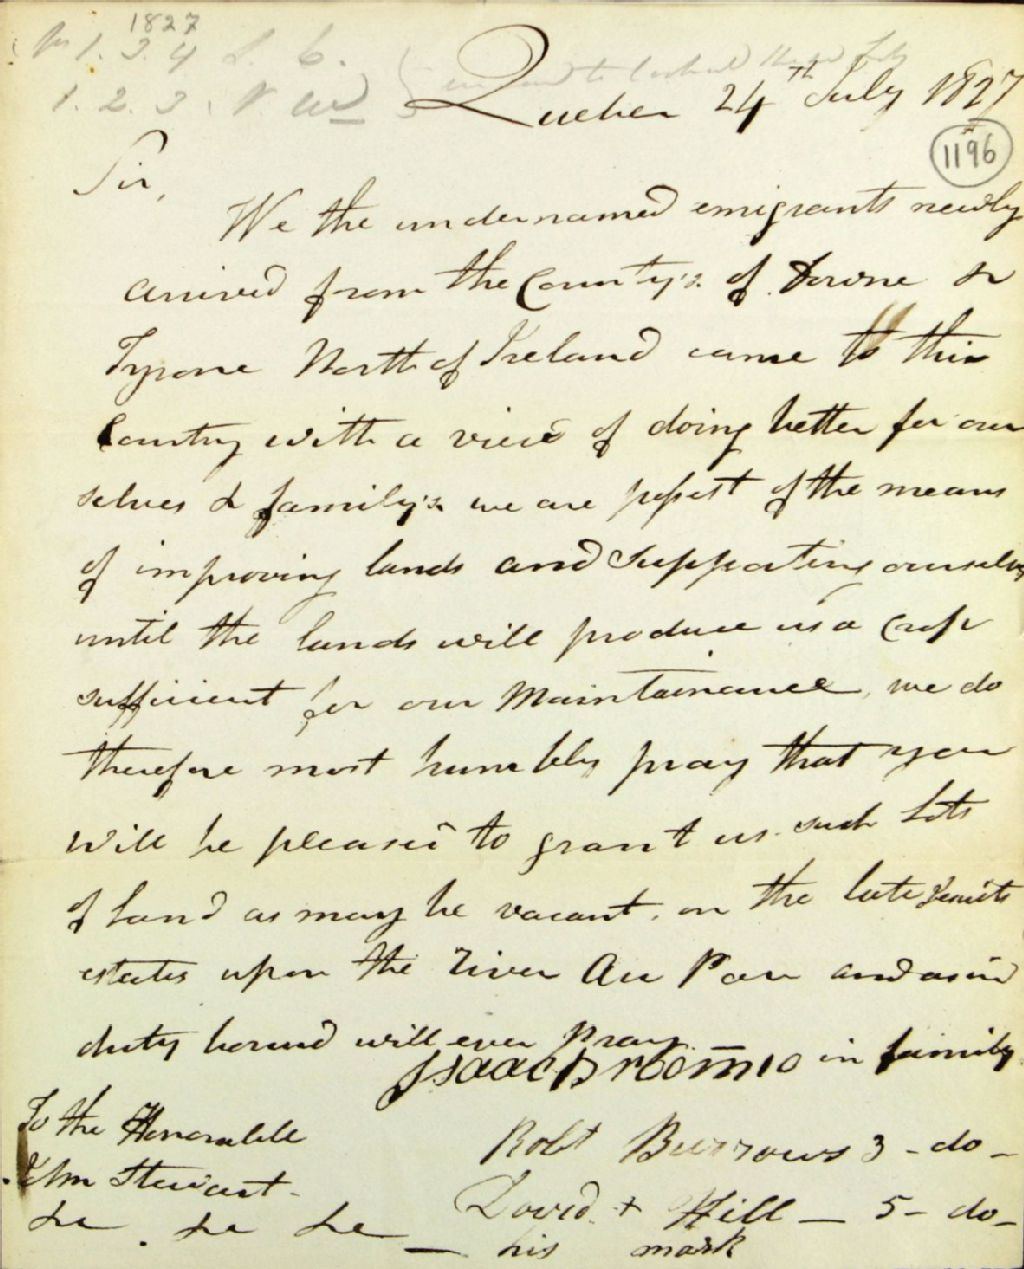 1827
1. 3. 4
1. 2. 3.
Quebec 24th July 1827
1196
Sir,
We the undernamed emigrants newly
arrived from the County's of Down &
Tyrone North of Ireland came to this
Country with a view of doing better for our
selves & family's we are possest of the means
of improving lands and supporting ourselves
until the lands will produce us a Crop
sufficient for our Maintainance, we do
therefore most humbly pray that you
will be pleased to grant us such Lots
of Land as may be vacant, on the late Jesuits
estates upon the River Au Pain and as in
duty bound will ever Pray.
Isaac Broom 10 in family
To the Honorable
John Stewart
&c &c &c
Robt Burrows 3 - do -
David + Hill - 5 - do -
his mark